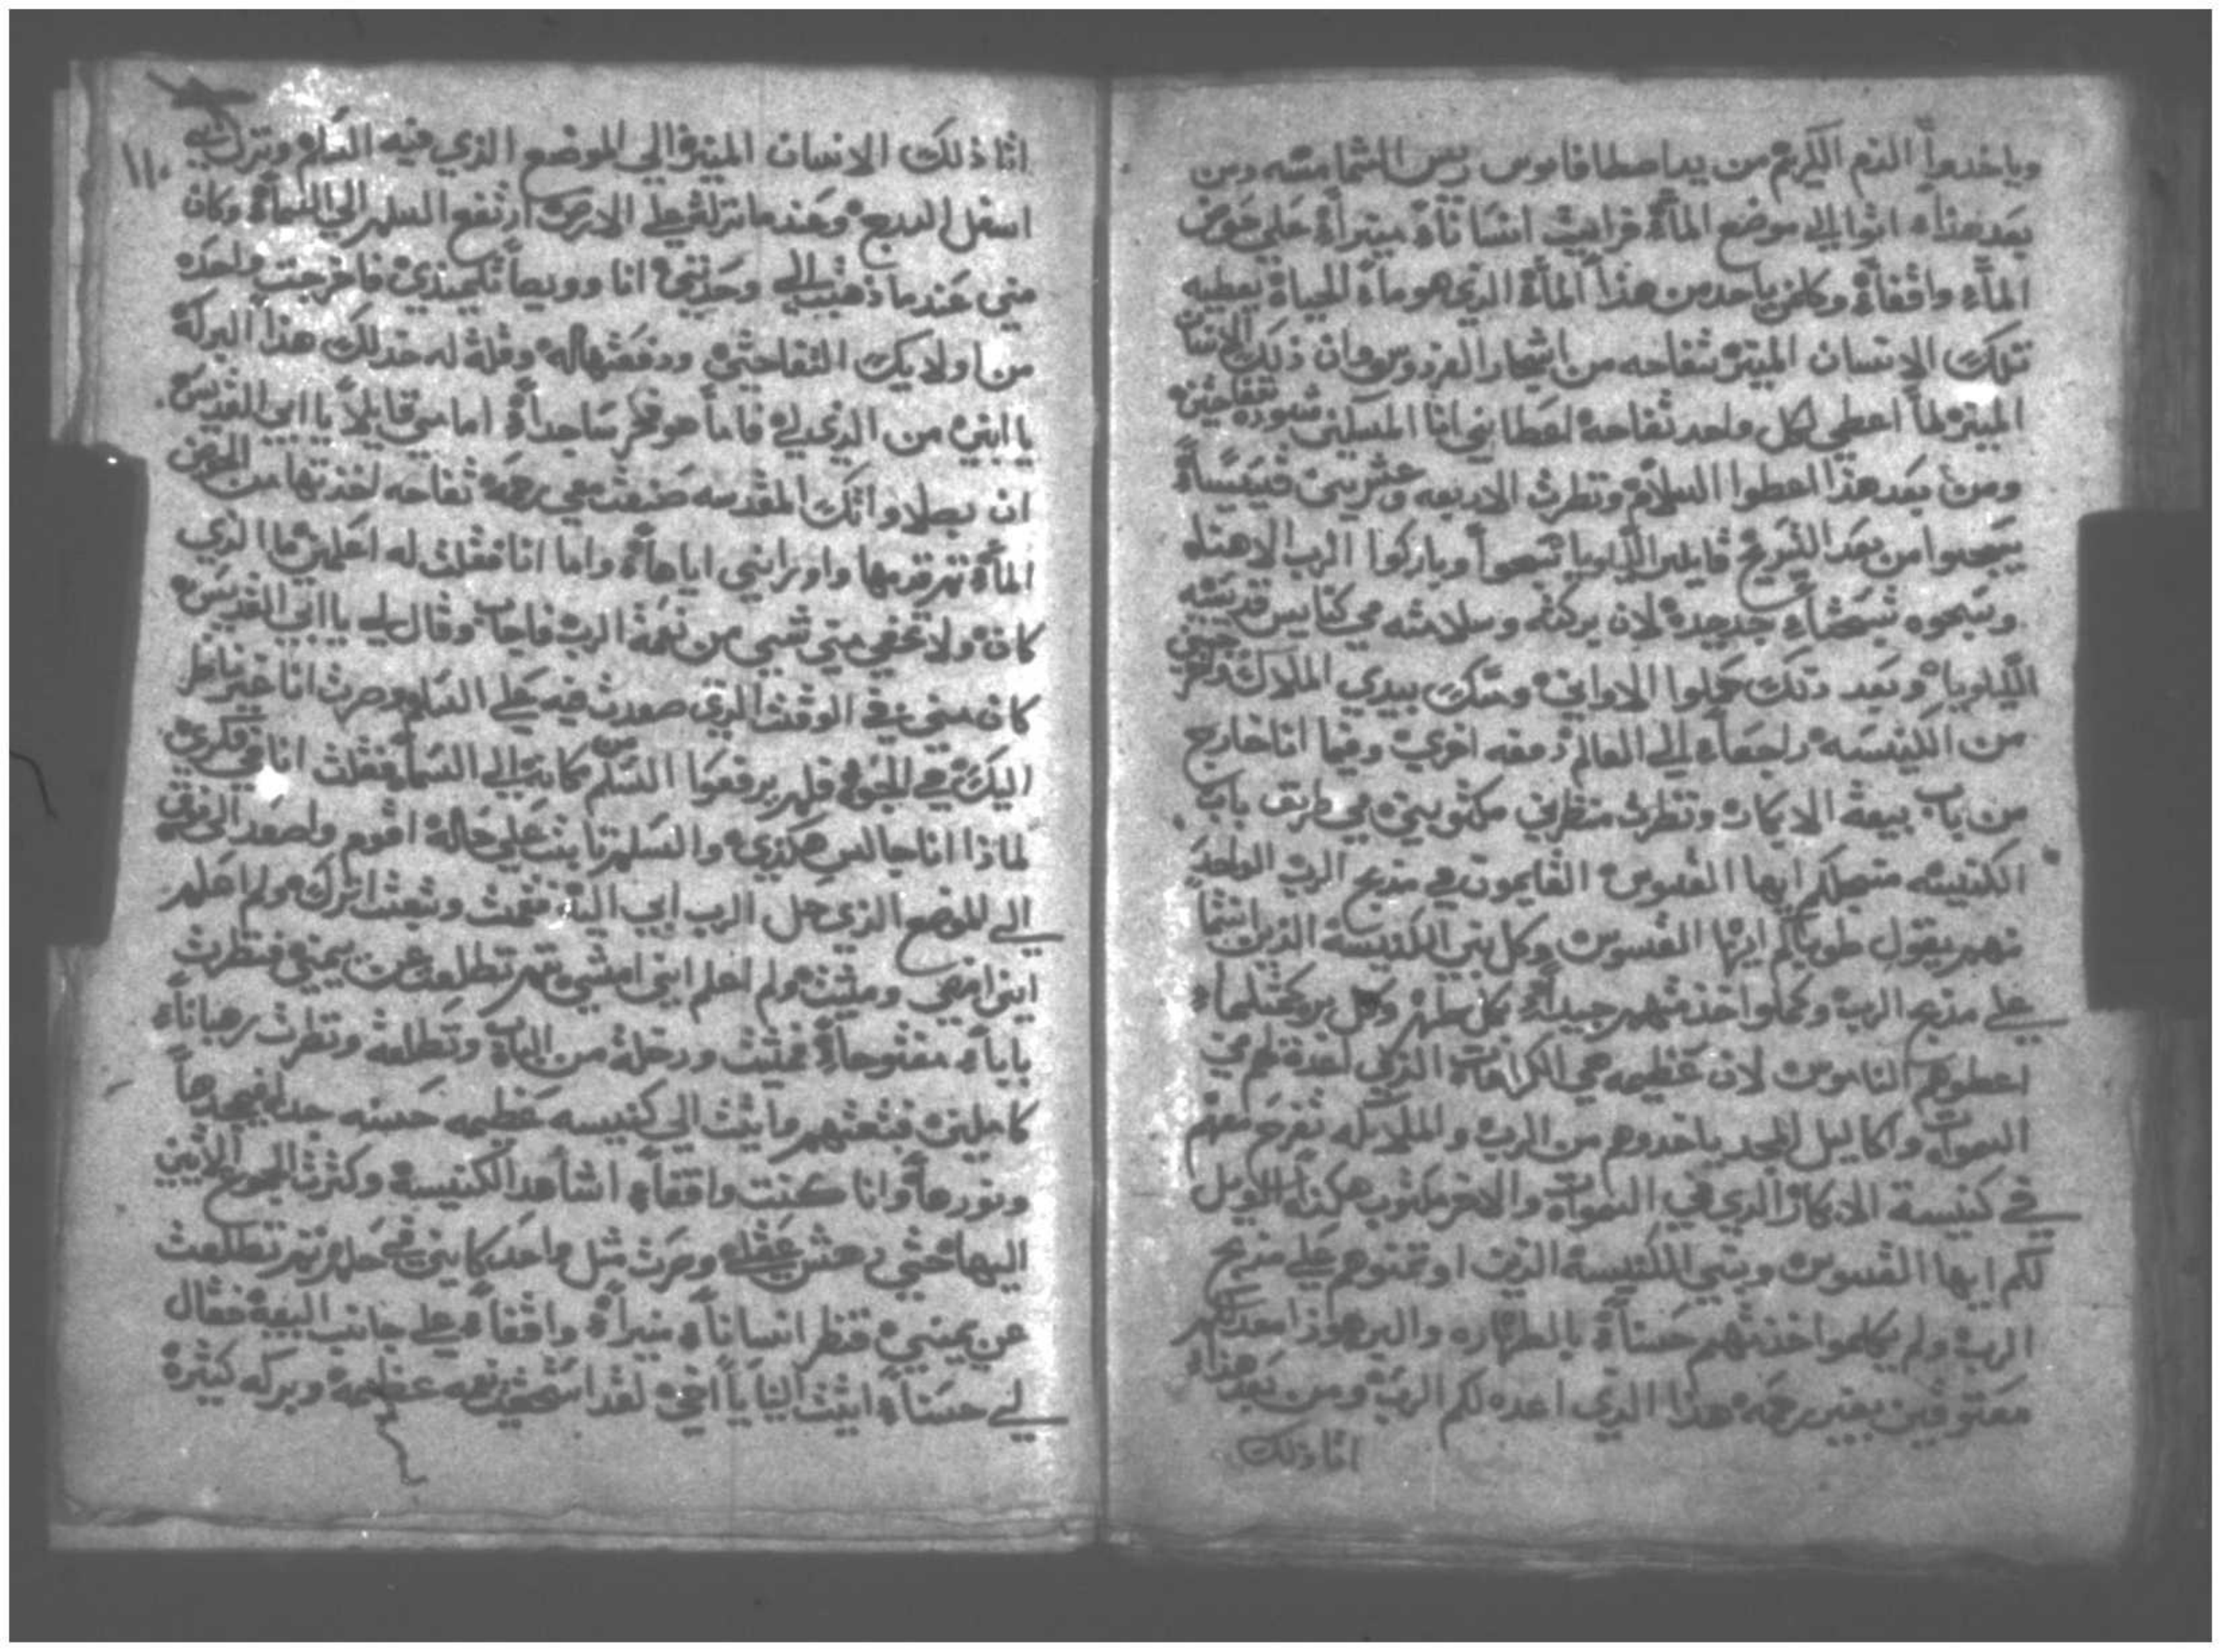 وياخدوا الدم الكريم من يد اصطافانوس ريس الشمامسه ومن
بعد هذاء اتوا الي موضع المأة فرايت انسانأة منيرأة علي حوض
المأء واقفأة وكلمن ياخد من هذا المأة الذي هو مأة الحياة يعطيه
تلك الانسان المنير تفاحه من اشجار الفردوس وان ذلك الانسان
المنير لما اعطي لكل واحد تفاحة اعطاني انا المسكين شنوده تفاحتين
ومن بعد هذا اعطوا السلام ونظرت الاربعه وعشرين قسيسأة
يسبحوا من بعد التسريح قايلين الليلويا سبحوا وباركوا الرب الاهنا
وسبحوه تسبحتأء جديدة لان بركته وسلامته في كنايس قديسيه
الليلويا وبعد دلك حملوا الاواني ومسك بيدي الملاك واخرجني
من الكنيسه راجعاء الي العالم دفعه اخري وفيما انا خارج
من باب بيعة الابكار ونظرت منظرين مكتوبين في طرف باب
الكنيسه متصلكم ايها القسوس القايمون في مذبح الرب الواحد
فهم يقول طوباكم ايها القسوس وكل بني الكنيسة الذين انتما
علي مذبح الرب وكملوا خذمتهم جيدأة بكل طهر وكل بر وكمثلما
اعطوهم الناموس لان عظيمه هي الكرامات الذي لعدة لهم في
السموات واكاليل المجد ياخدوهم من الرب والملايكه تفرح معهم
في كنيسة الابكار الدي في السموات والاخر مكتوب هكذا الويل
لكم ايها القسوس وبني الكنيسة الذين اوتمنوهم علي مذبح
الرب ولم يكملوا خذمتهم حسنأة بالطهاره والبر هوذا معد لكم
معتوقين بغير رحمه هذا الذي اعده لكم الرب ومن بعد هذاء
اتا ذلك
١١٠
اتا ذلك الانسان المنير الي الموضع الذي فيه السلم ونزل الي
اسفل المدبح وعند ما نزلت علي الارض ارتفع السلم الي السمأة وكان
متي عند ما ذهبت الي وحدتي انا وويصأ تلميذي فاخرجت واحده
من اولايك التفاحتين ودفعتها له وقلة له خد لك هذا البركة
يا ابني من الذي لي فاما هو فخر ساجدأة امامي قايلأ يا ابي القديس
ان بصلاواتك المقدسه صنعت معي رحمة تفاحه اخذتها من الحوض
المأة واورانيي اياهأة واما انا فقلت له اعلمني ما الذي
كان ولا تخفي مني شيي من نعمة الرب فاجاب وقال لي يا ابي القديس
كان مني في الوقت الذي صعدت فيه علي السلم وصرت انا غير ناظر
اليك في الجو فلم يرفعوا السلم من مكانه الي السمأ فقلت انا في فكري
لماذا انا جالس هكذي والسلم ثابت علي حاله اقوم واصعد الي فوق
الي الموضع الذي حل الرب ابي اليه فقمت وتبعت اترك ولم اعلم
اين امضي ومشيت ولم اعلم ايني امشي ثم تطلعت عن يميني فنظرت
بابأء مفتوحأة فمشيت ودخلة من الباب وتطلعه ونظرت رهبانأء
كاملين فتبعتهم واتيت الي كنيسه عظيمه حسنه جدا في مجدها
ونورهأ وانا كنت واقفأء اشاهد الكنيسة وكثرت الجموع الأتيين
اليها حتي دهش عقلي وصرت مثل واحد كاين في حلم ثم تطلعت
عن يميني فنظر انسانأة منيرأة واقفأء علي جانب البيعة فقال
لي حسنأة اتيت الينا يا اخي لقد استحقيت نعمه عظيمة وبركه كثيره